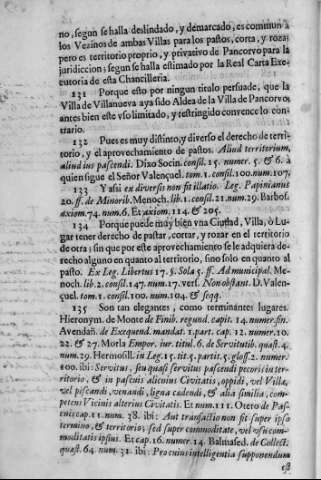 no, segun se halla deslindado, y demarcado, es commun à
los Vezinos de ambas Villas para los pastos, corta, y roza;
pero es territorio proprio, y privativo de Pancorvo para la
juridiccion; segun se halla estimado por la Real Carta Exe-
cutoria de esta Chancilleria.
131 Porque esto por ningun titulo persuade, que la
Villa de Villanueva aya sido Aldea de la Villa de Pancorvo;
antes bien este vso limitado, y restringido convence lo con-
trario.
132 Pues es muy distinto, y diverso el derecho de terri-
torio, y el aprovechamiento de pastos. Aliud territorium,
aliud ius pascendi. Dixo Socin. consil. 15. numer. 5. & 6. à
quien sigue el Señor Valençuel. tom. 1. consil. 100. num. 107.
133 Y assi ex diversis non fit illatio. Leg. Papinianus
20. ff. de Minorib. Menoch. lib. 1. consil. 21. num. 29. Barbos.
axiom. 74. num. 6. Et axiom. 114. & 205.
134 Porque puede muy bien vna Ciudad, Villa, ò Lu-
gar tener derecho de pastar, cortar, y rozar en el territorio
de otra; sin que por este aprovechamiento se le adquiera de-
recho alguno en quanto al territorio, sino solo en quanto al
pasto. Ex Leg. Libertus 17. §. Sola 5. ff. Ad municipal. Me-
noch. lib. 2. consil. 147. num. 17. vers. Non obstant. D. Valen-
çuel. tom. 1. consil. 100. num. 104. & seqq.
135 Son tan elegantes, como terminantes lugares.
Hieronym. de Monte de Finib. regund. capit. 14. numer. fin.
Avendañ. de Exequend. mandat. 1. part. cap. 12. numer. 10.
22. & 27. Morla Empor. iur. titul. 6. de Servitutib. quæst. 4.
num. 29. Hermosill. in Leg. 15. tit. 5. partit. 5. gloss. 2. numer.
100. ibi: Servitus, seu quasi servitus pascendi pecori in ter-
ritorio, & in pascuis alicuius Civitatis, oppidi, vel Villæ,
vel piscandi, venandi, ligna cædendi, & alia similia, com-
petens Vicinis alterius Civitatis. Et num. 111. Otero de Pas-
cuis cap. 11. num. 38. ibi: Aut transactio non fit super ipso
termino, & territorio; sed super commoditate, vel vsu com-
moditatis ipsius. Et cap. 16. numer. 14. Balmased. de Collect.
quæst. 64. num. 31. ibi: Pro cuius intelligentia supponendum